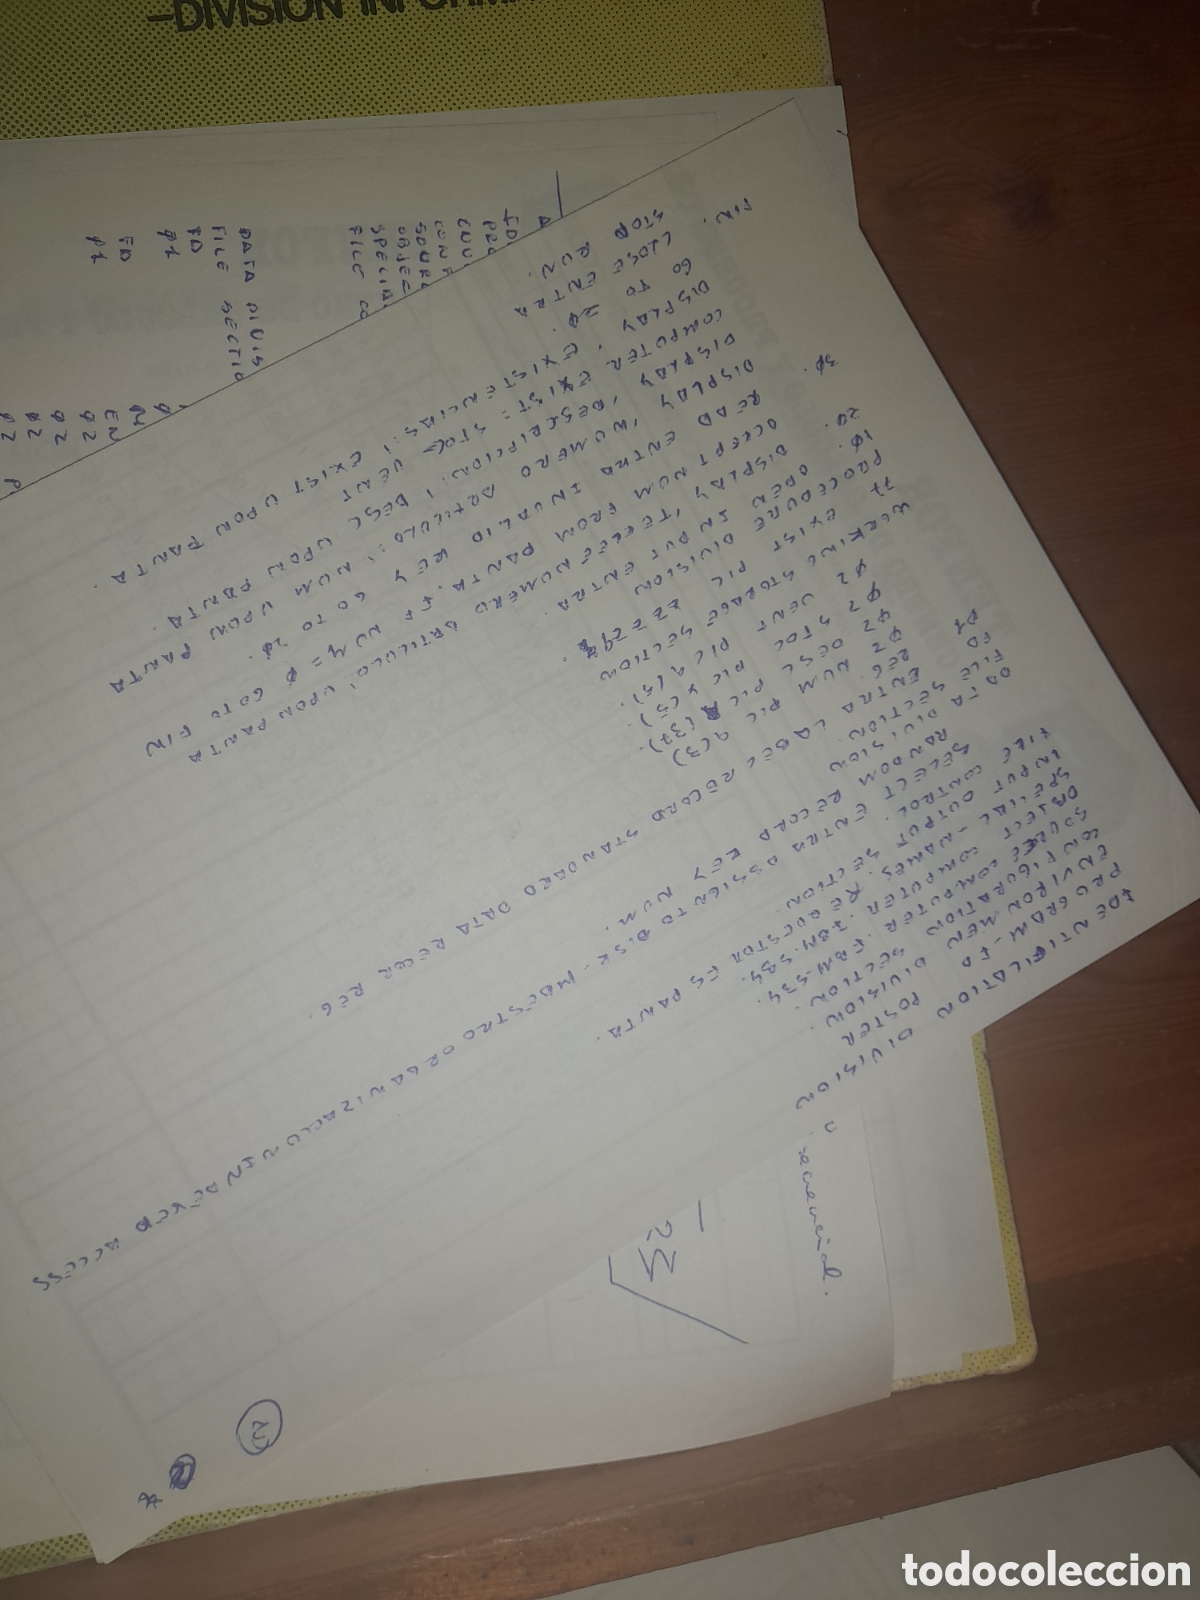 -DIVISIÓN INFORMA
IDENTIFICATION DIVISION
PROGRAM-ID POSTER
ENVIRONMEN DIVISION.
CONFIGURATION SECTION.
SOURCE COMPUTER. IBM-S34.
OBJECT COMPUTER. IBM-S34.
SPECIAL-NAMES. REQUESTOR ES PANTA.
INPUT OUTPUT SECTION.
FILE CONTROL.
SELECT ENTRA ASSIGN TO DISK-MAESTRO ORGANIZACION INDEXED ACCESS
RANDOM RECORD KEY NUM.
DATA DIVISION
FILE SECTION.
FD ENTRA LABEL RECORD STANDARD DATA RECOR REG.
01 REG.
02 NUM PIC 9(3)
02 DESC PIC A(37).
02 STOC PIC X(5).
02 VENT PIC 9(5).
WORKING STORAGE SECTION
77 EXIST PIC ZZZZ9
PROCEDURE DIVISION
10. OPEN INPUT ENTRA.
20. DISPLAY 'TECLEE NUMERO ARTICULO' UPON PANTA
ACCEPT NUM FROM PANTA. IF NUM = 0 GO TO FIN
READ ENTRA INVALID KEY GO TO 20.
30. DISPLAY 'NUMERO ARTICULO:' NUM UPON PANTA
DISPLAY 'DESCRIPCION:' DESC UPON PANTA.
COMPUTER EXIST = STOC - VENT
DISPLAY 'EXISTENCIAS:' EXIST UPON PANTA.
GO TO 20.
FIN. CLOSE ENTRA
STOP RUN.
secuencial.
FILE
DATA DIVIS
FILE SECTIO
FD
01
FD
01
todocoleccion